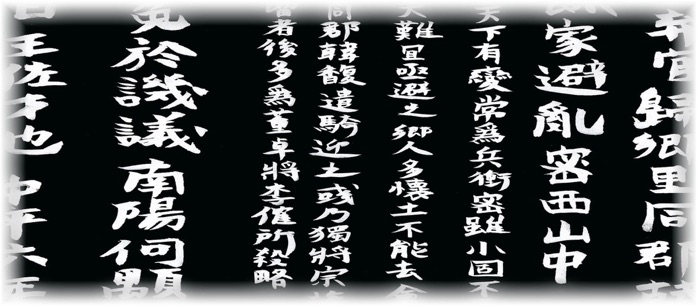 官歸鄉里同郡
家避亂密西山中
天下有變常爲兵衝密雖小固不
大難宜亟避之鄉人多懷土不能去會
同郡韓馥遣騎迎之彧乃獨將宗族
者後多爲董卓將李傕所殺略
免於譏議南陽何顒
曰王佐才也中平六年